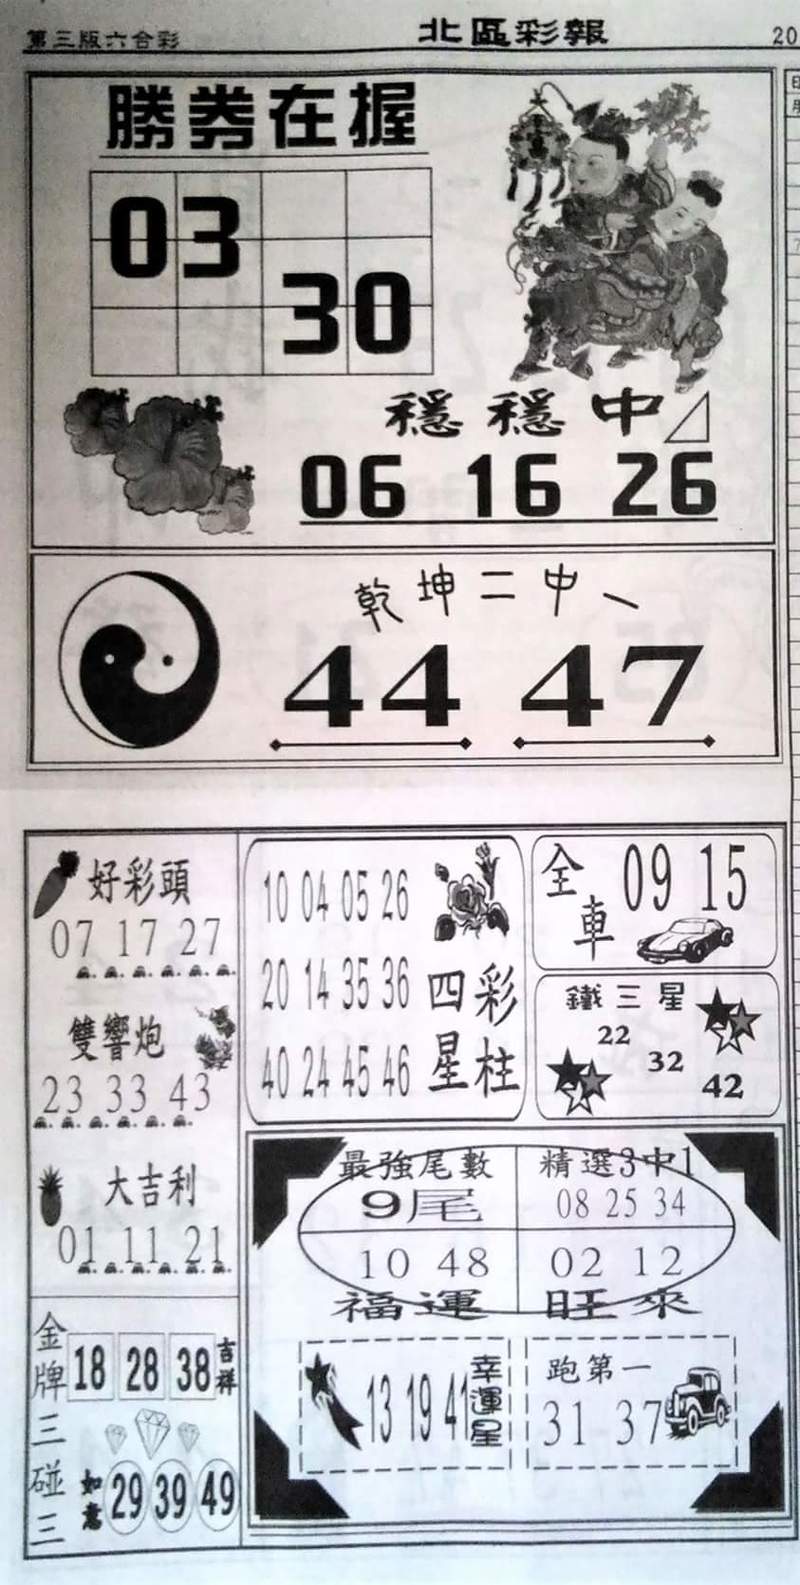 第三版六合彩
北區彩報
20
勝券在握
03
30
穩穩中
06 16 26
乾坤二中一
44 47
好彩頭
07 17 27
雙響炮
23 33 43
大吉利
01 11 21
金牌三碰三
18 28 38
吉祥
如意
29 39 49
10 04 05 26
20 14 35 36
40 24 45 46
四星彩柱
全車
09 15
鐵三星
22
32
42
最強尾數
9尾
精選3中1
08 25 34
10 48
02 12
福運旺來
13 19 41
幸運星
跑第一
31 37